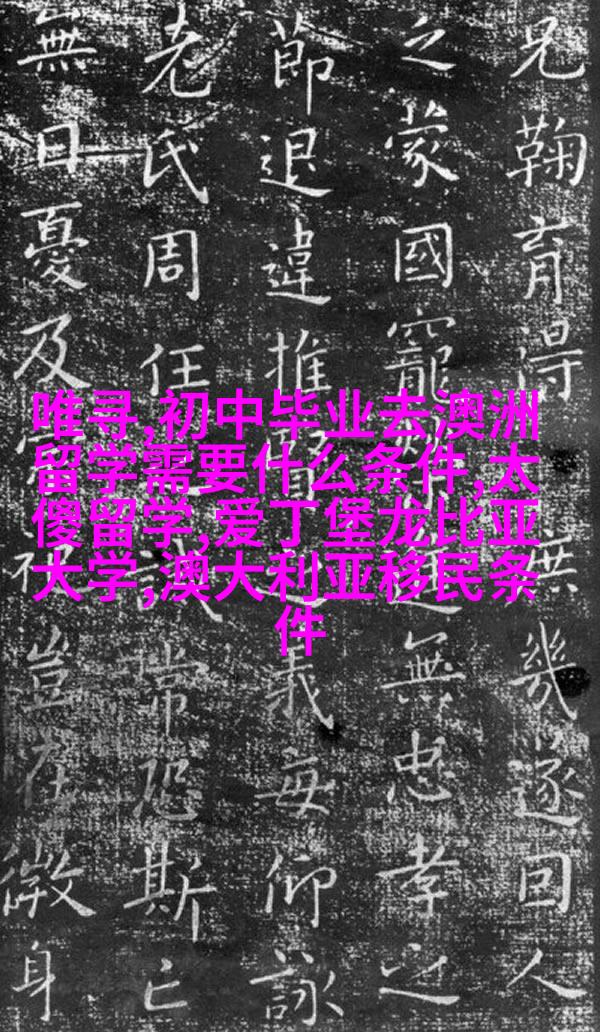 兄鞠育得無幾遂回人
之蒙國寵無忠孝之
節退違推義每仰詠
老氏周任誡常恐斯亡
無日憂及豈在微身
唯寻,初中毕业去澳洲
留学需要什么条件,太
傻留学,爱丁堡龙比亚
大学,澳大利亚移民条
件